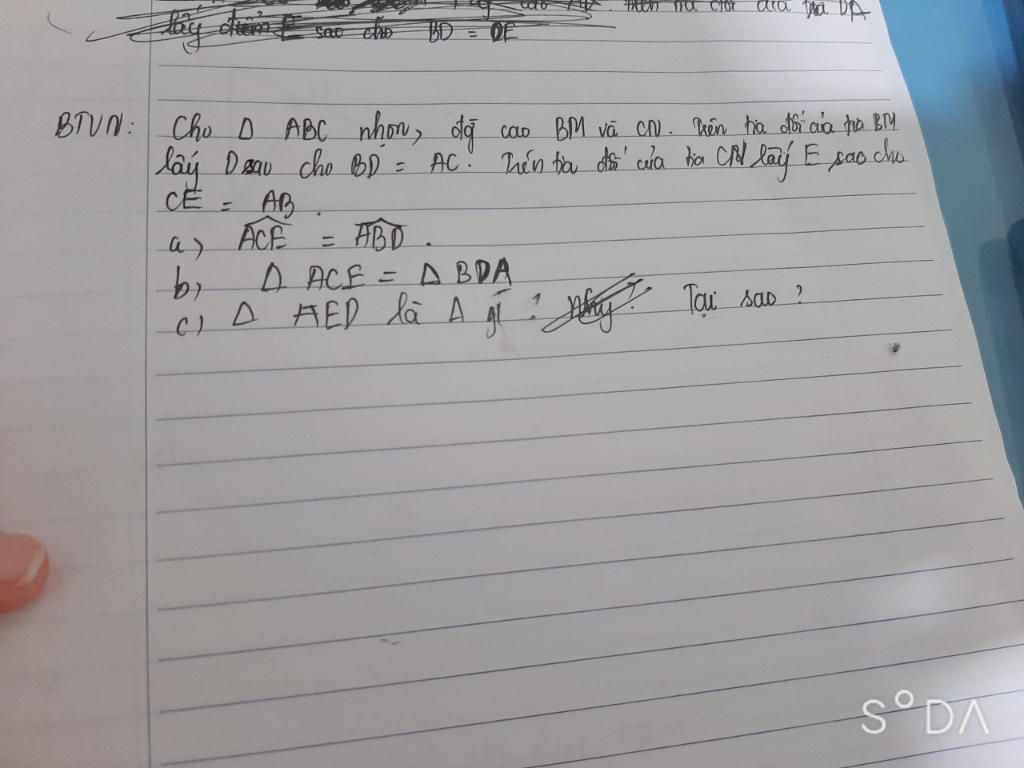 lấy điểm E sao cho BD = DE
BTVN: Cho Δ ABC nhọn, đg cao BM và CN. Trên tia đối của tia BM
lấy D sao cho BD = AC. Trên tia đối của tia CN lấy E sao cho
CE = AB.
a, ACE = ABD.
b, Δ ACE = Δ BDA
c, Δ AED là Δ gì? Tại sao?
SODA